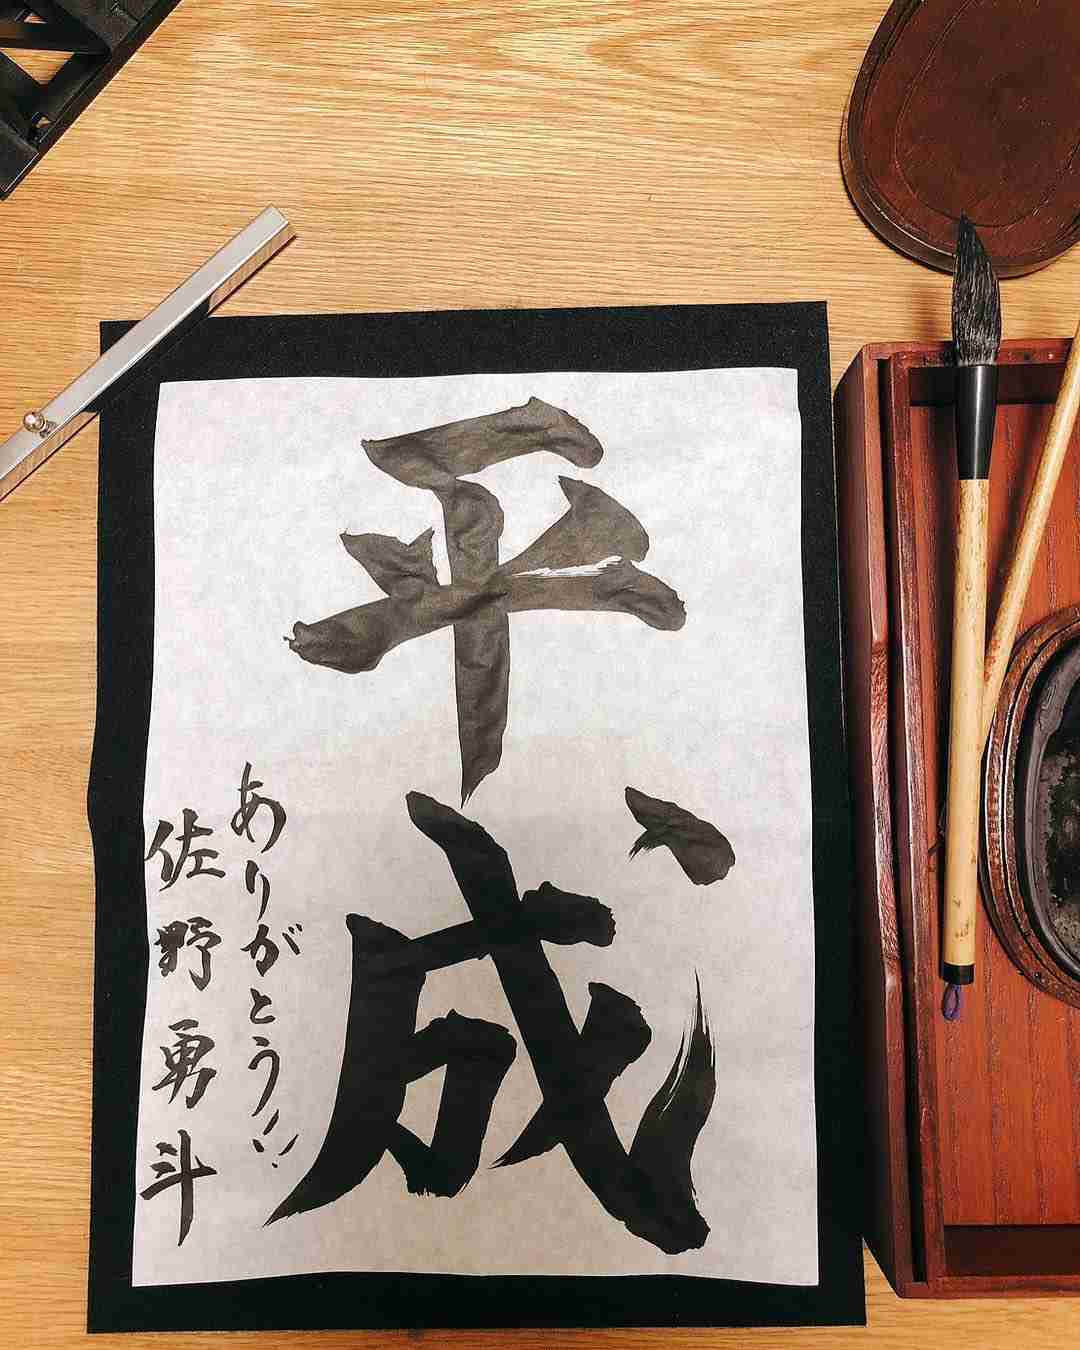 平成
ありがとう!!
佐野勇斗